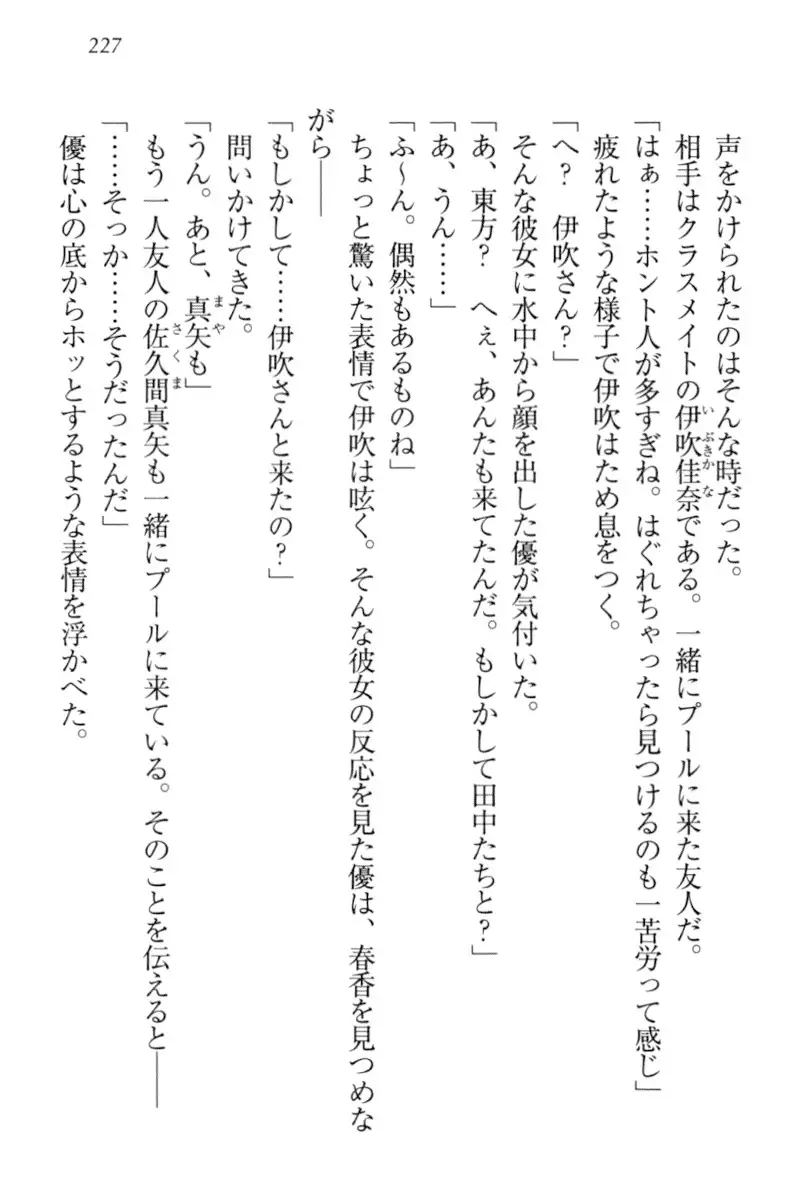 227
声をかけられたのはそんな時だった。
相手はクラスメイトの伊吹佳奈である。一緒にプールに来た友人だ。
「はぁ……ホント人が多すぎね。はぐれちゃったら見つけるのも一苦労って感じ」
疲れたような様子で伊吹はため息をつく。
「へ？　伊吹さん？」
そんな彼女に水中から顔を出した優が気付いた。
「あ、東方？　へぇ、あんたも来てたんだ。もしかして田中たちと？」
「あ、うん……」
「ふ～ん。偶然もあるものね」
ちょっと驚いた表情で伊吹は呟く。そんな彼女の反応を見た優は、春香を見つめな
がら――
「もしかして……伊吹さんと来たの？」
問いかけてきた。
「うん。あと、真矢も」
もう一人友人の佐久間真矢も一緒にプールに来ている。そのことを伝えると――
「……そっか……そうだったんだ」
優は心の底からホッとするような表情を浮かべた。